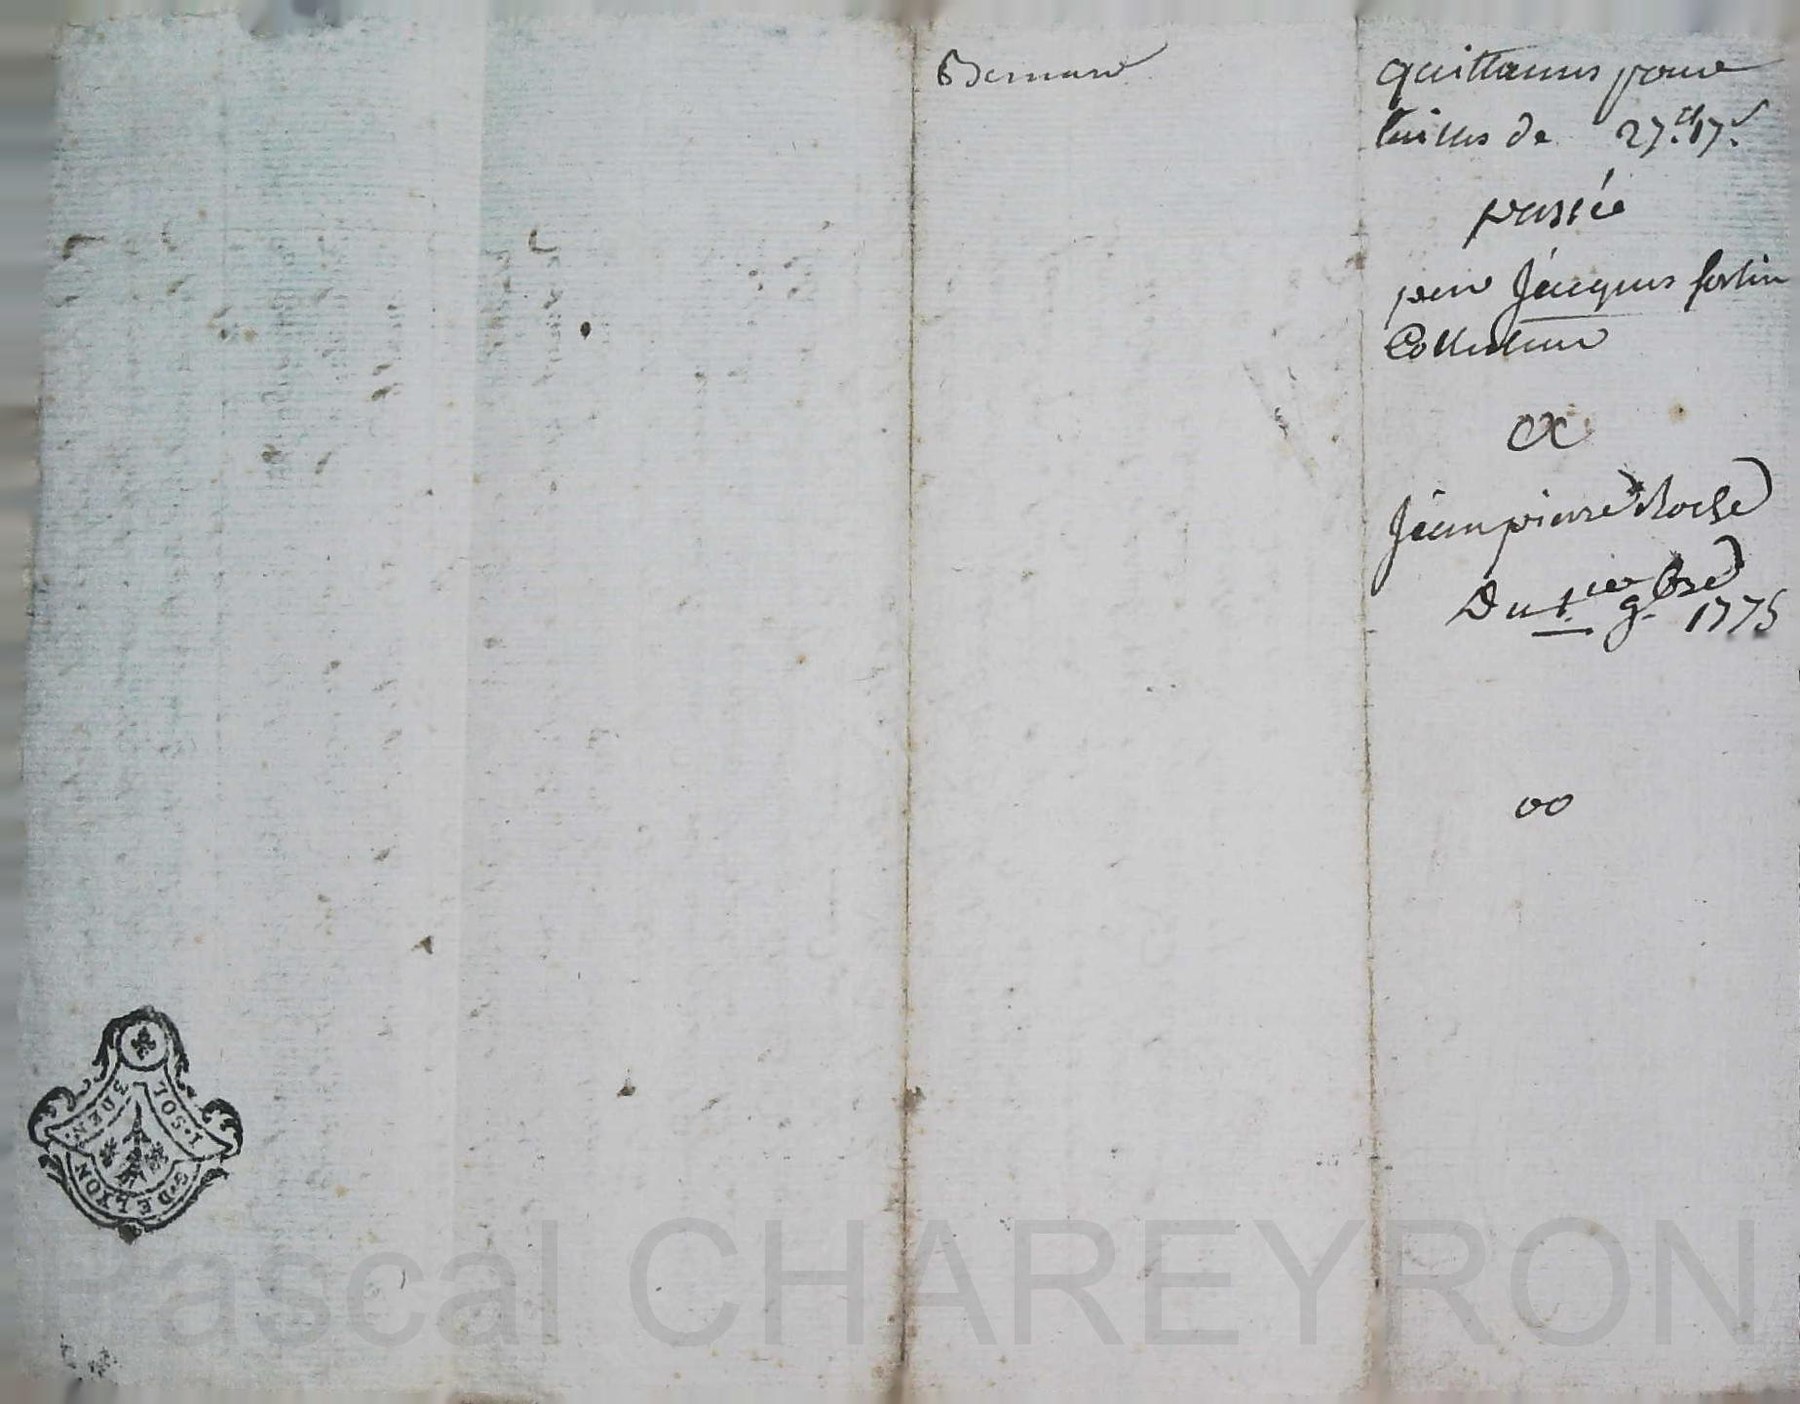 Bernard
quittances pour
tailles de 27.tt 17.s
passée
par Jacques fortin
Collecteur
a
Jean pierre Roche
Du 1.ier 9.bre 1775
1·SOL
3 DEN
G·DE LYON
Pascal CHAREYRON